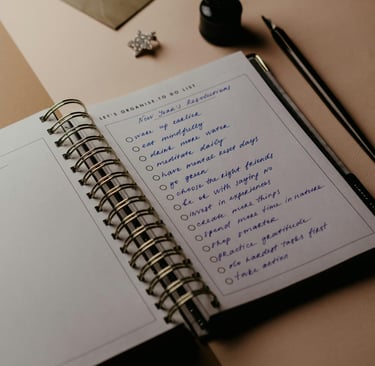 LET'S ORGANISE TO DO LIST
New Year's Resolutions
wake up earlier
eat mindfully
drink more water
meditate daily
have mental reset days
go green
choose the right friends
be ok with saying no
invest in experiences
create more things
spend more time in nature
shop smarter
practice gratitude
do hardest tasks first
take action